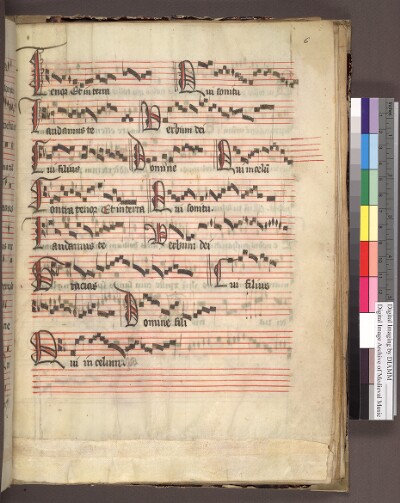 6
Tenor Et in terra Qui sonitu
Laudamus te Verbum dei
Cui filius Domine Qui in celū
Contra tenor Et in terra Qui sonitu.
Laudamus te Verbum dei
Gracias Cui filius
Domine fili
Qui in celum.
Digital Imaging by DIAMM
Digital Image Archive of Medieval Music